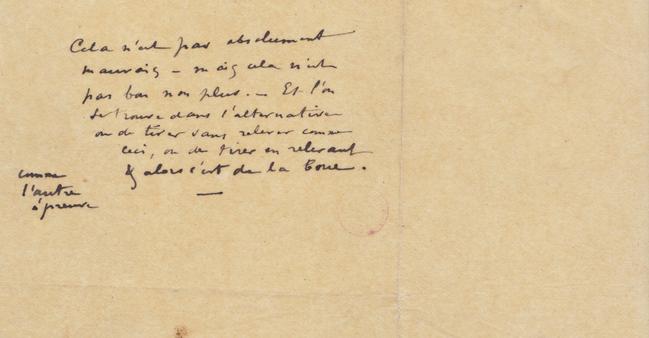 Cela n'est pas absolument
mauvais – mais cela n'est
pas bon non plus. – Et l'on
se trouve dans l'alternative
ou de tirer sans relever comme
ceci, ou de tirer en relevant
& alors c'est de la boue.
comme
l'autre
épreuve